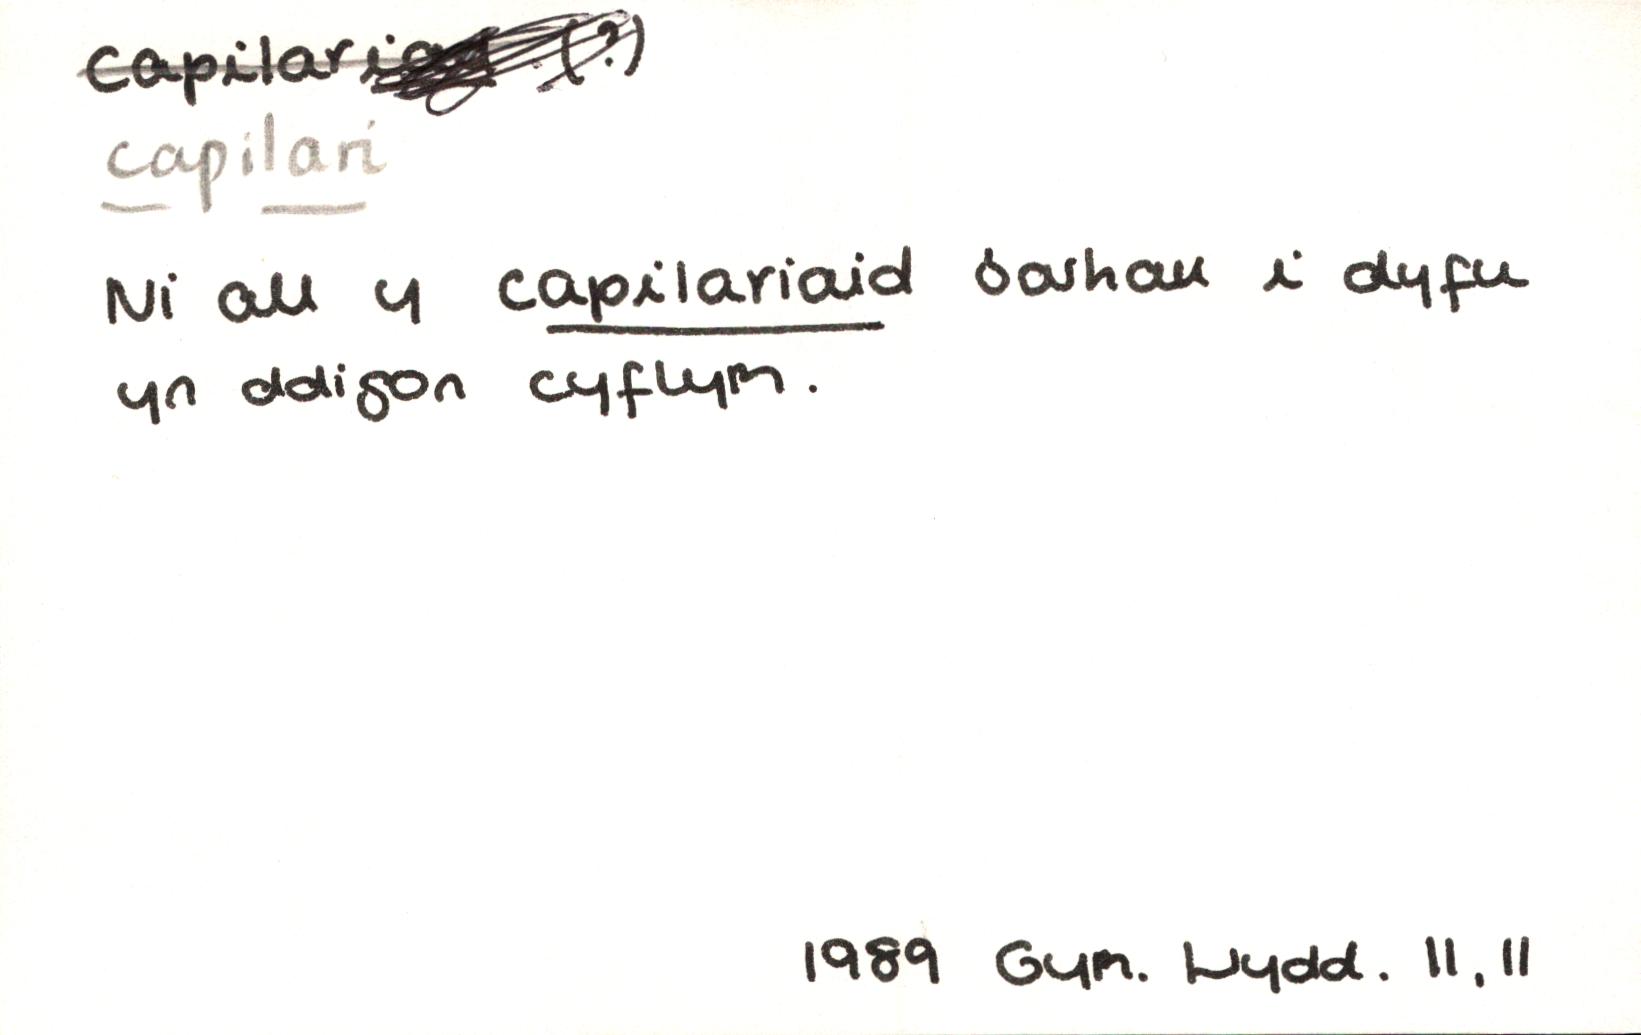 capilari (?)
capilari
Ni all y capilariaid barhau i dyfu
yn ddigon cyflym.
1989 Gym. Wydd. 11, 11